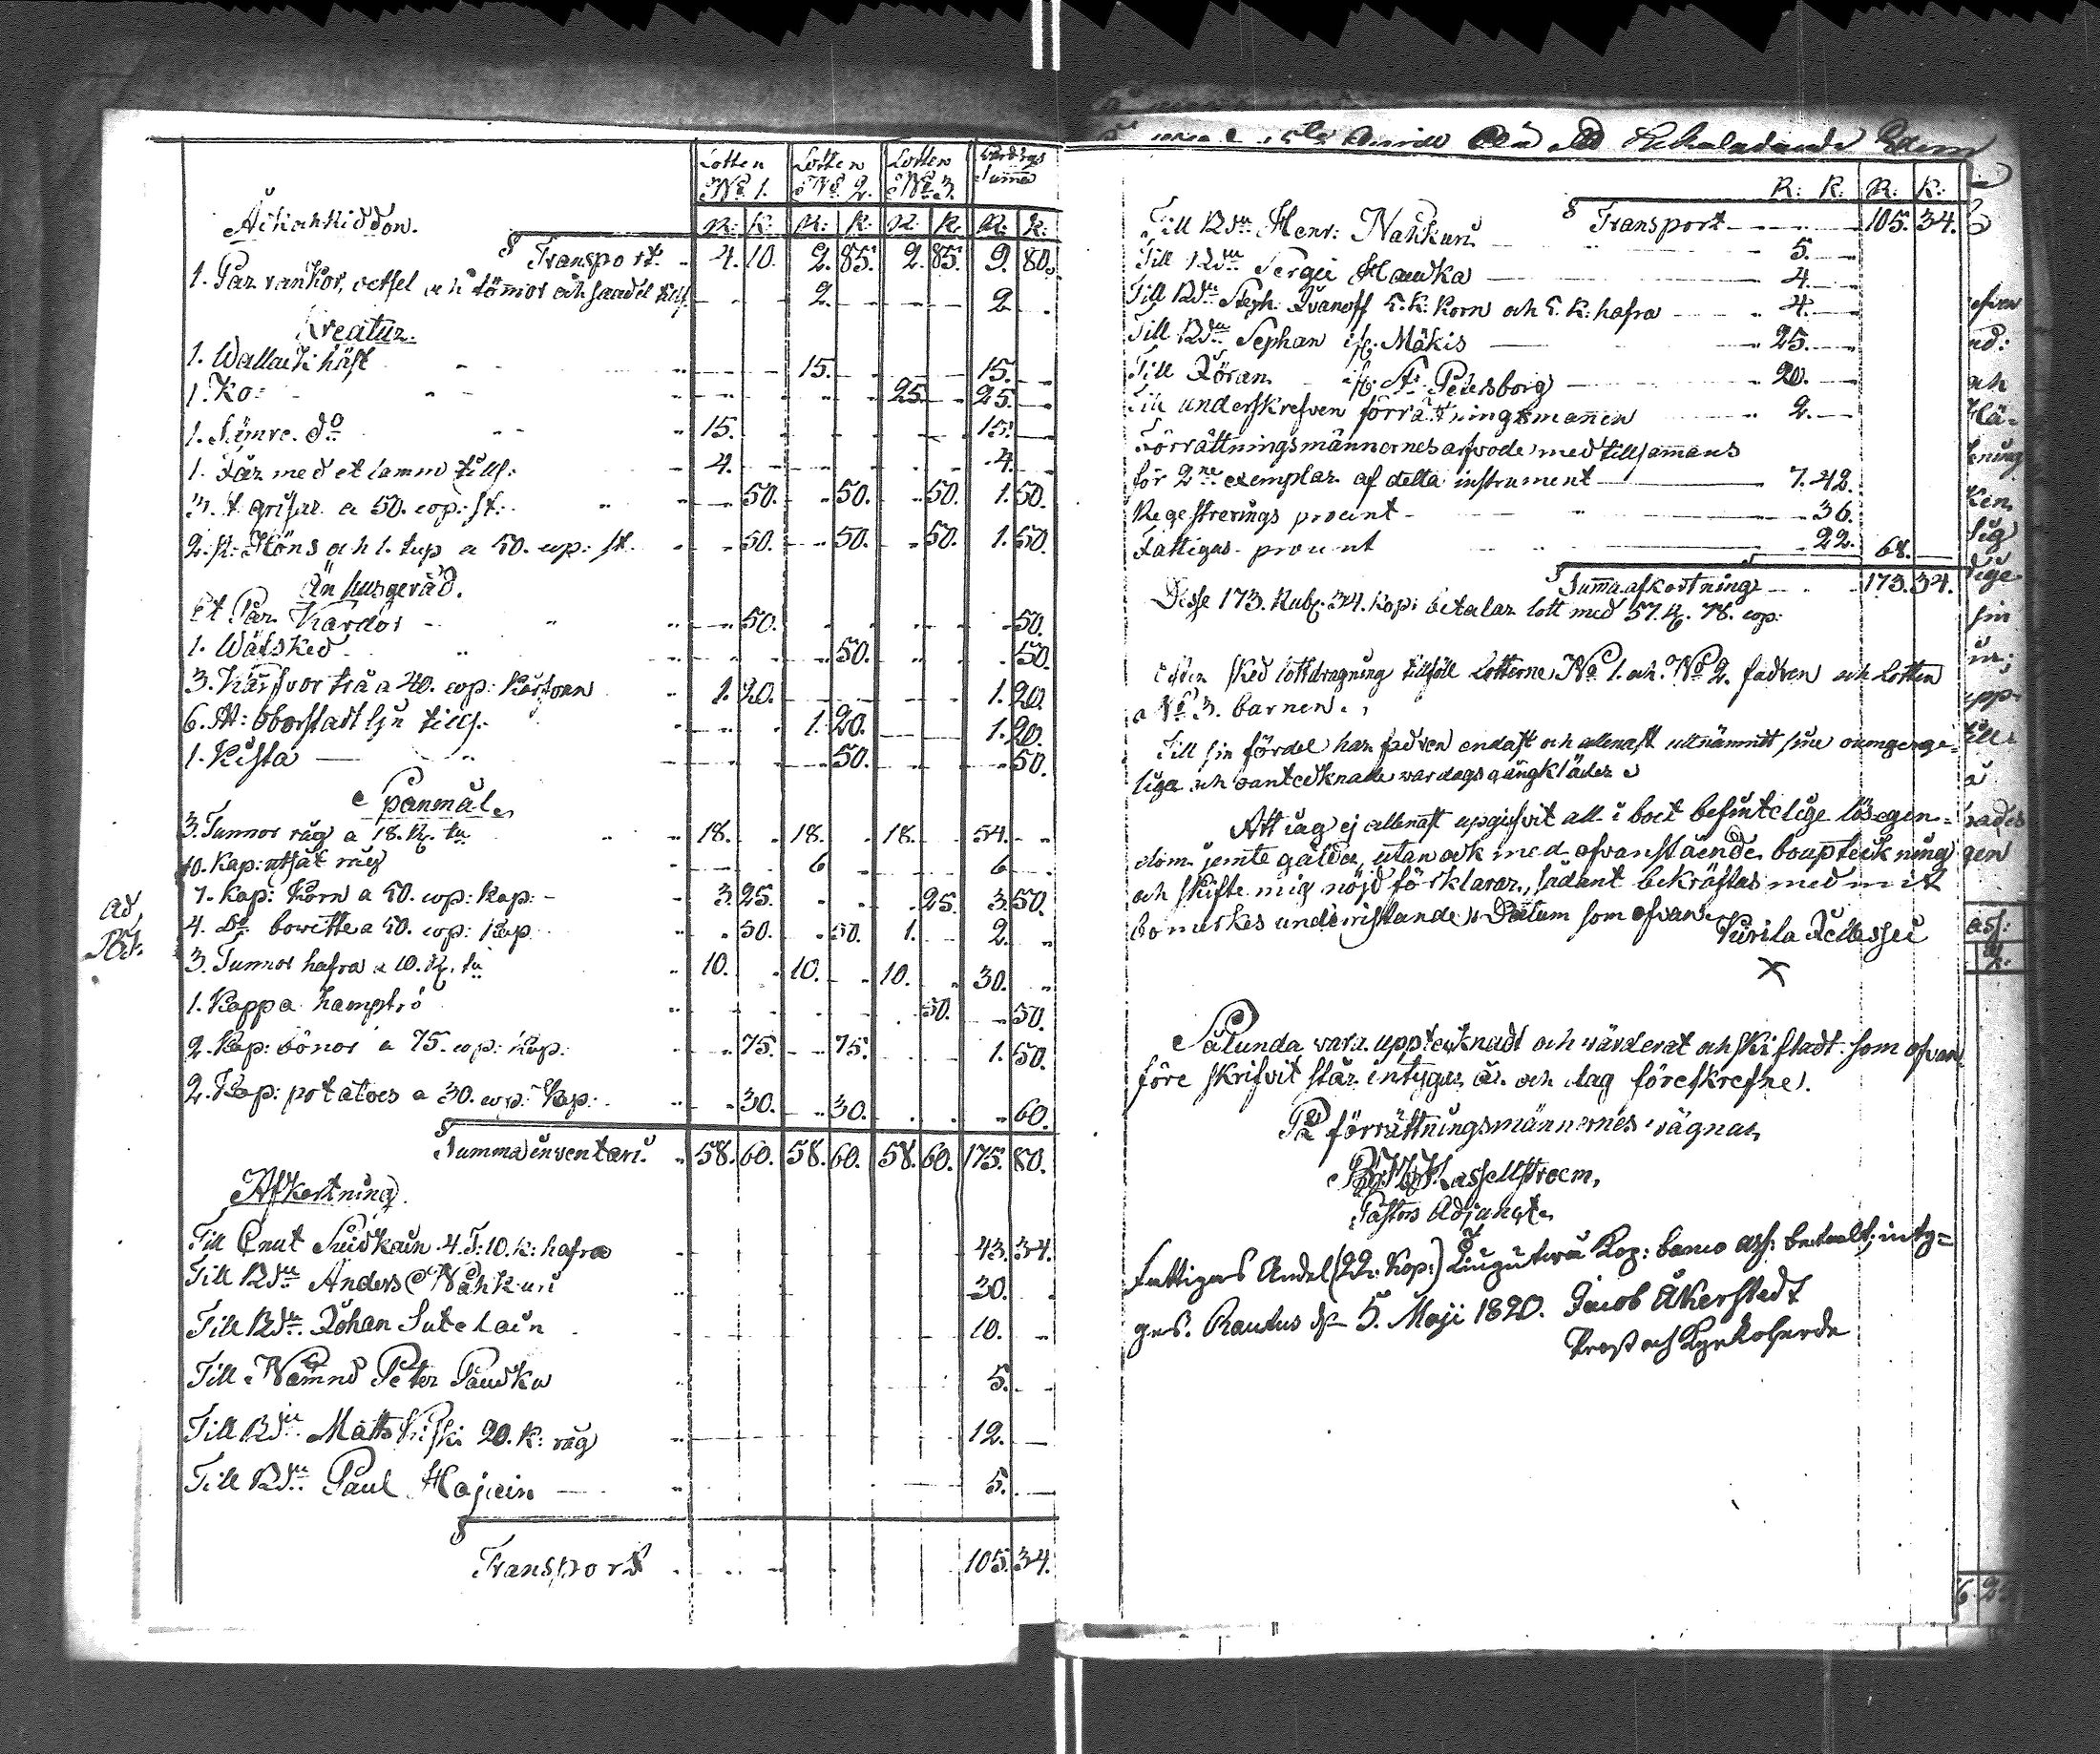 Lotten Lotten Lotten Värdrgs
No. 1. No. 2. No. 3. Summa
Åkiahkiddon. R: K: R: K: R: K. R: K:
Transport. 4. 10. 2. 85. 2. 85. 9. 80.
1. Par rankor, och tömor och saadel tills. 2. 2.
Kreatur.
1. Wallack häst 15. 15.
1. Ko: 25. 25.
1. Sämre do 15. 15.
1. Får med et lamm tills: 4. 4.
3. st grisar a 50. cop: st: 50. 50. 50. 1. 50.
2. st: Höns och 1. tup a 50. cop: st. 50. 50. 50. 1. 50.
Än husgeråd.
Et Par Kardor 50. 50.
1. Wäfsked 50. 50.
3. Kärfvor trä a 40. cop: kärfvan 1. 20. 1. 20.
6. st: tills: 1. 20. 1. 20.
1. Kista 50. 50.
Spanmål.
3. Tunnor råg a 18. R. tn 18. 18. 18. 54.
10. Kap: utsät råg 6 6
7. Kap: Korn a 50. cop: kap: 3. 25. 25. 3. 50.
ad
4. Do bowitte a 50. cop: kap 50. 50. 1. 2.
3. Tunnor hafra a 10. R. tn 10. 10. 10. 30.
1. Kappa hampfrö 50. 50.
2. Kap: bönor a 75. cop: kap: 75. 75. 1. 50.
2. Kap: potatoes a 30. cop: kap: 30. 30. 60.
Summa inventari. 58. 60. 58. 60. 58. 60. 175. 80.
Afkortning.
Till Cnut Suikain 4. T: 10. K: hafra 43. 34.
Till Bdn Anders Nahkuri 30.
Till Bdn Johan Sutelain 10.
Till Nämnd Peter Paukku 5.
Till Bdn Matts Kiski 20. K: råg 12.
Till Bdn Paul Hajuin 5.
Transport 105. 34.
R: K. R: K:
Till Bdn Henr: Nahkuri Transport 105. 34.
5.
Till Bdn Sergei Hauka 4.
Till Bdn Steph. Ivanoff 5. K: Korn och 5. K: hafra 4.
Till Bdn Stephan if: Mäkis 25.
Till Jöran if: St. Petersborg 20.
Till underskrefven förrättningsmannen 2.
Förrättningsmännernes arfvode med tillsamans
för 2ne exemplar af detta instrument 7. 42.
Regestrerings procent 36.
Fattigas procent 22. 68.
Summa afkortning 173. 34.
Desse 173. Rub. 34. Kop: betalar lott med 57. R. 78. cop:
Efter sked lottdragning tillföll Lotterne No 1. och No 2. fadren och Lotten
No 3. barnen.
Till sin fördel har fadren endast och allenast utnämnt sine oumgenge-
lige och oanteknade wardags gångkläder
Att jag ej allenast upgifvit all i boet befintelige lösegen-
dom jemte gälder, utan ock med ofvanstående bouptekning
och skifte mig nöjd förklarar, sådant bekräftas med mit
bomärkes underritande. Datum som ofvan
Kirila
X
Sålunda vara upptecknadt och värderat och skiftadt som ofvan
före skrifvit står, intygar år och dag föreskrefne.
På förrättningsmännernes vägnar
Hassellstroem,
Pastors Adjunct.
Fattigas Andel (22. Kop:) Tjugutvå Kop: banco ass: betalt, intyg=
gas. Rautus d. 5. Maji 1820. Jacob Åkerstedt
Prost och Kyrkoherde